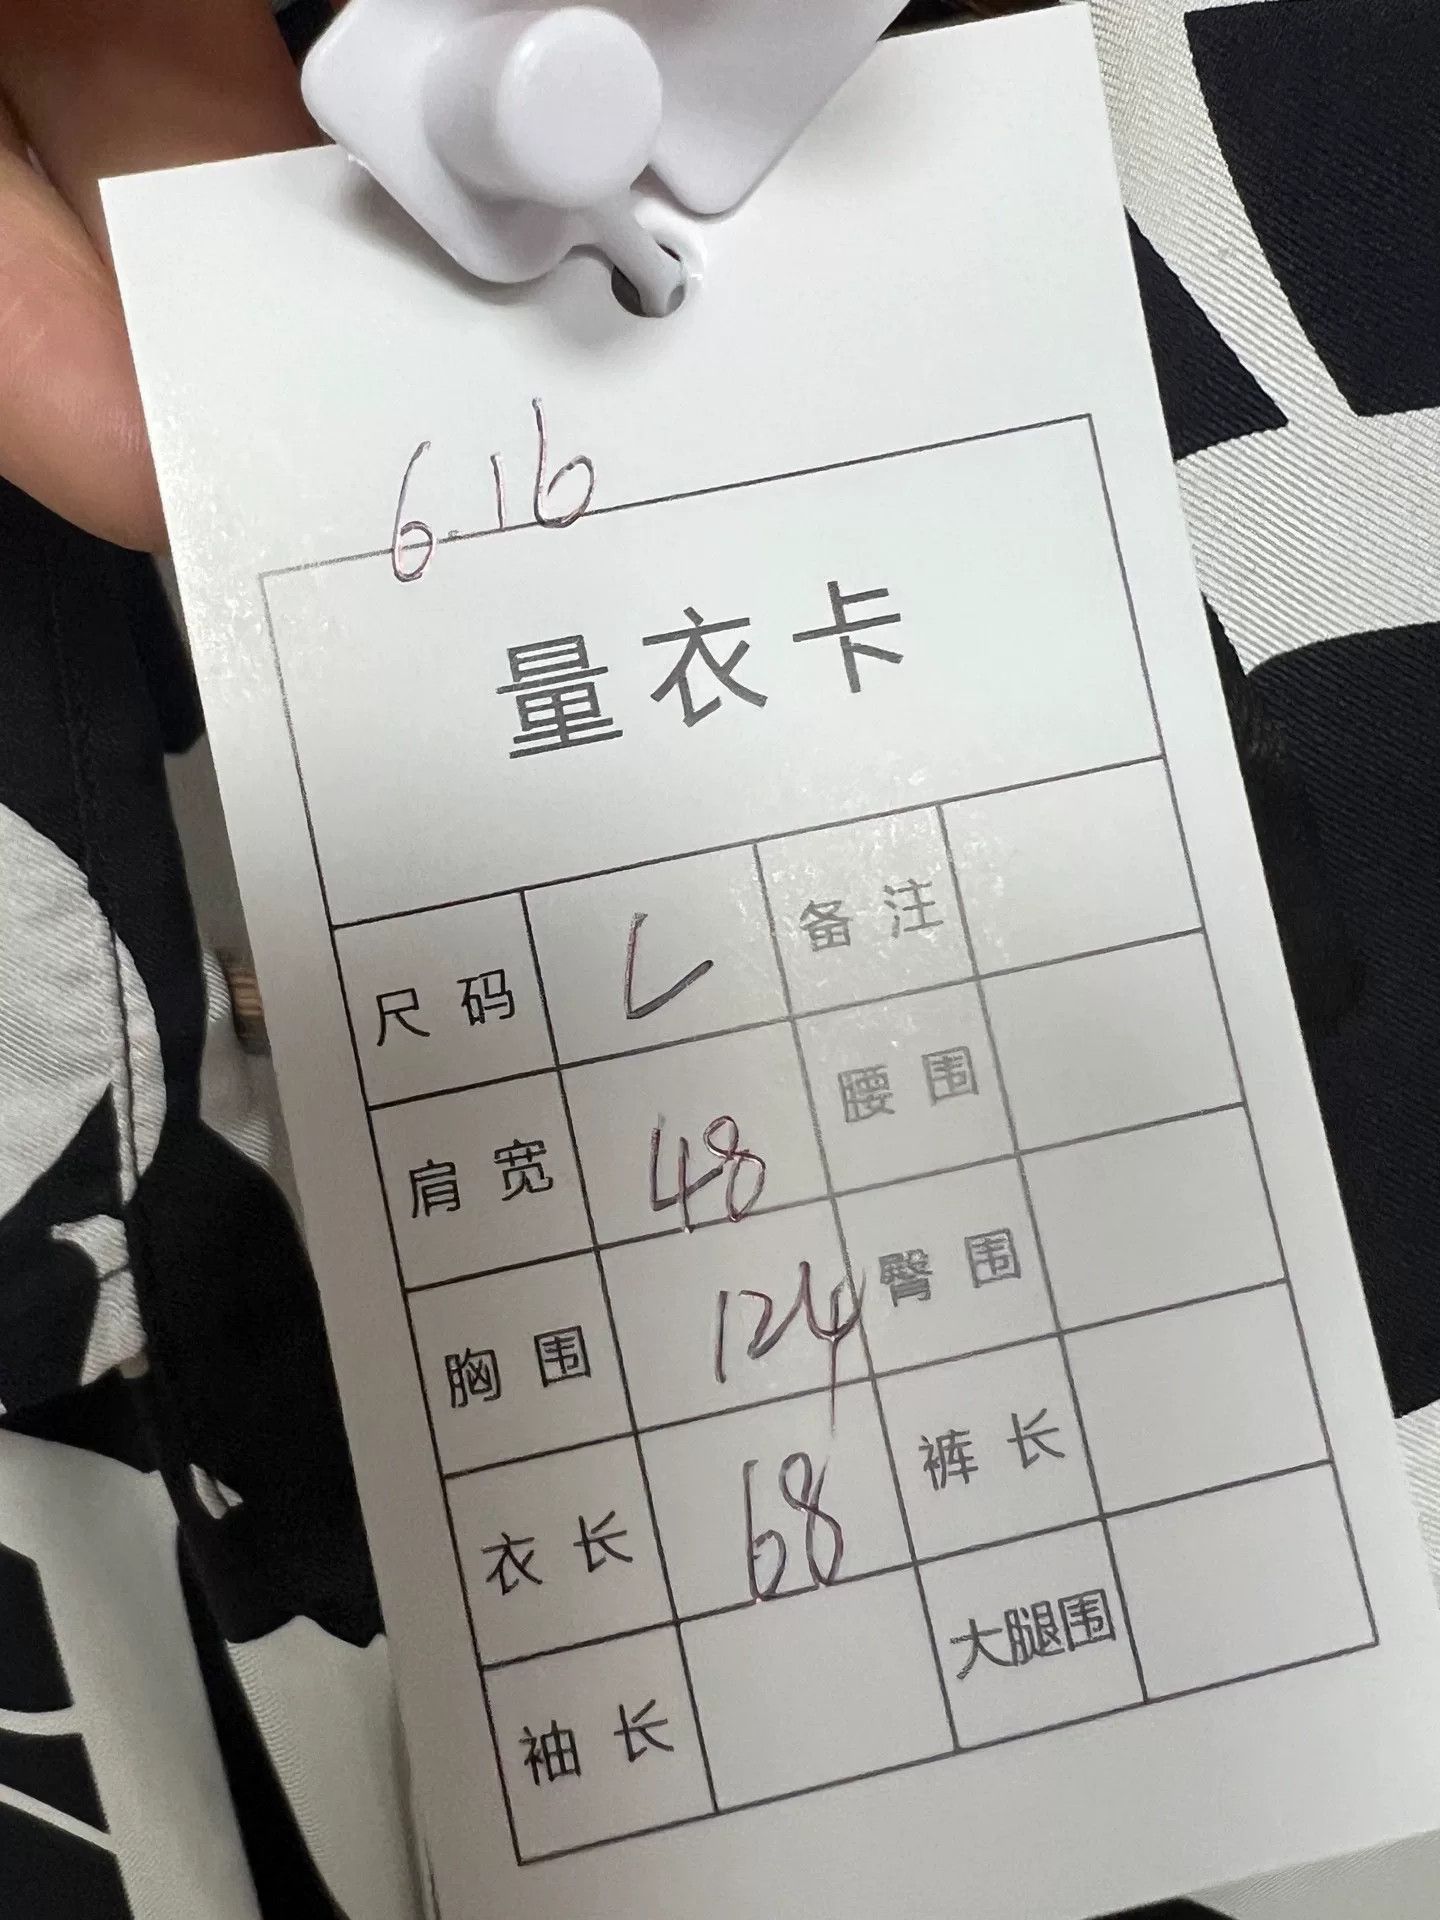 6.16
量衣卡
尺码 L 备注
肩宽 48 腰围
胸围 124 臀围
衣长 68 裤长
袖长 大腿围